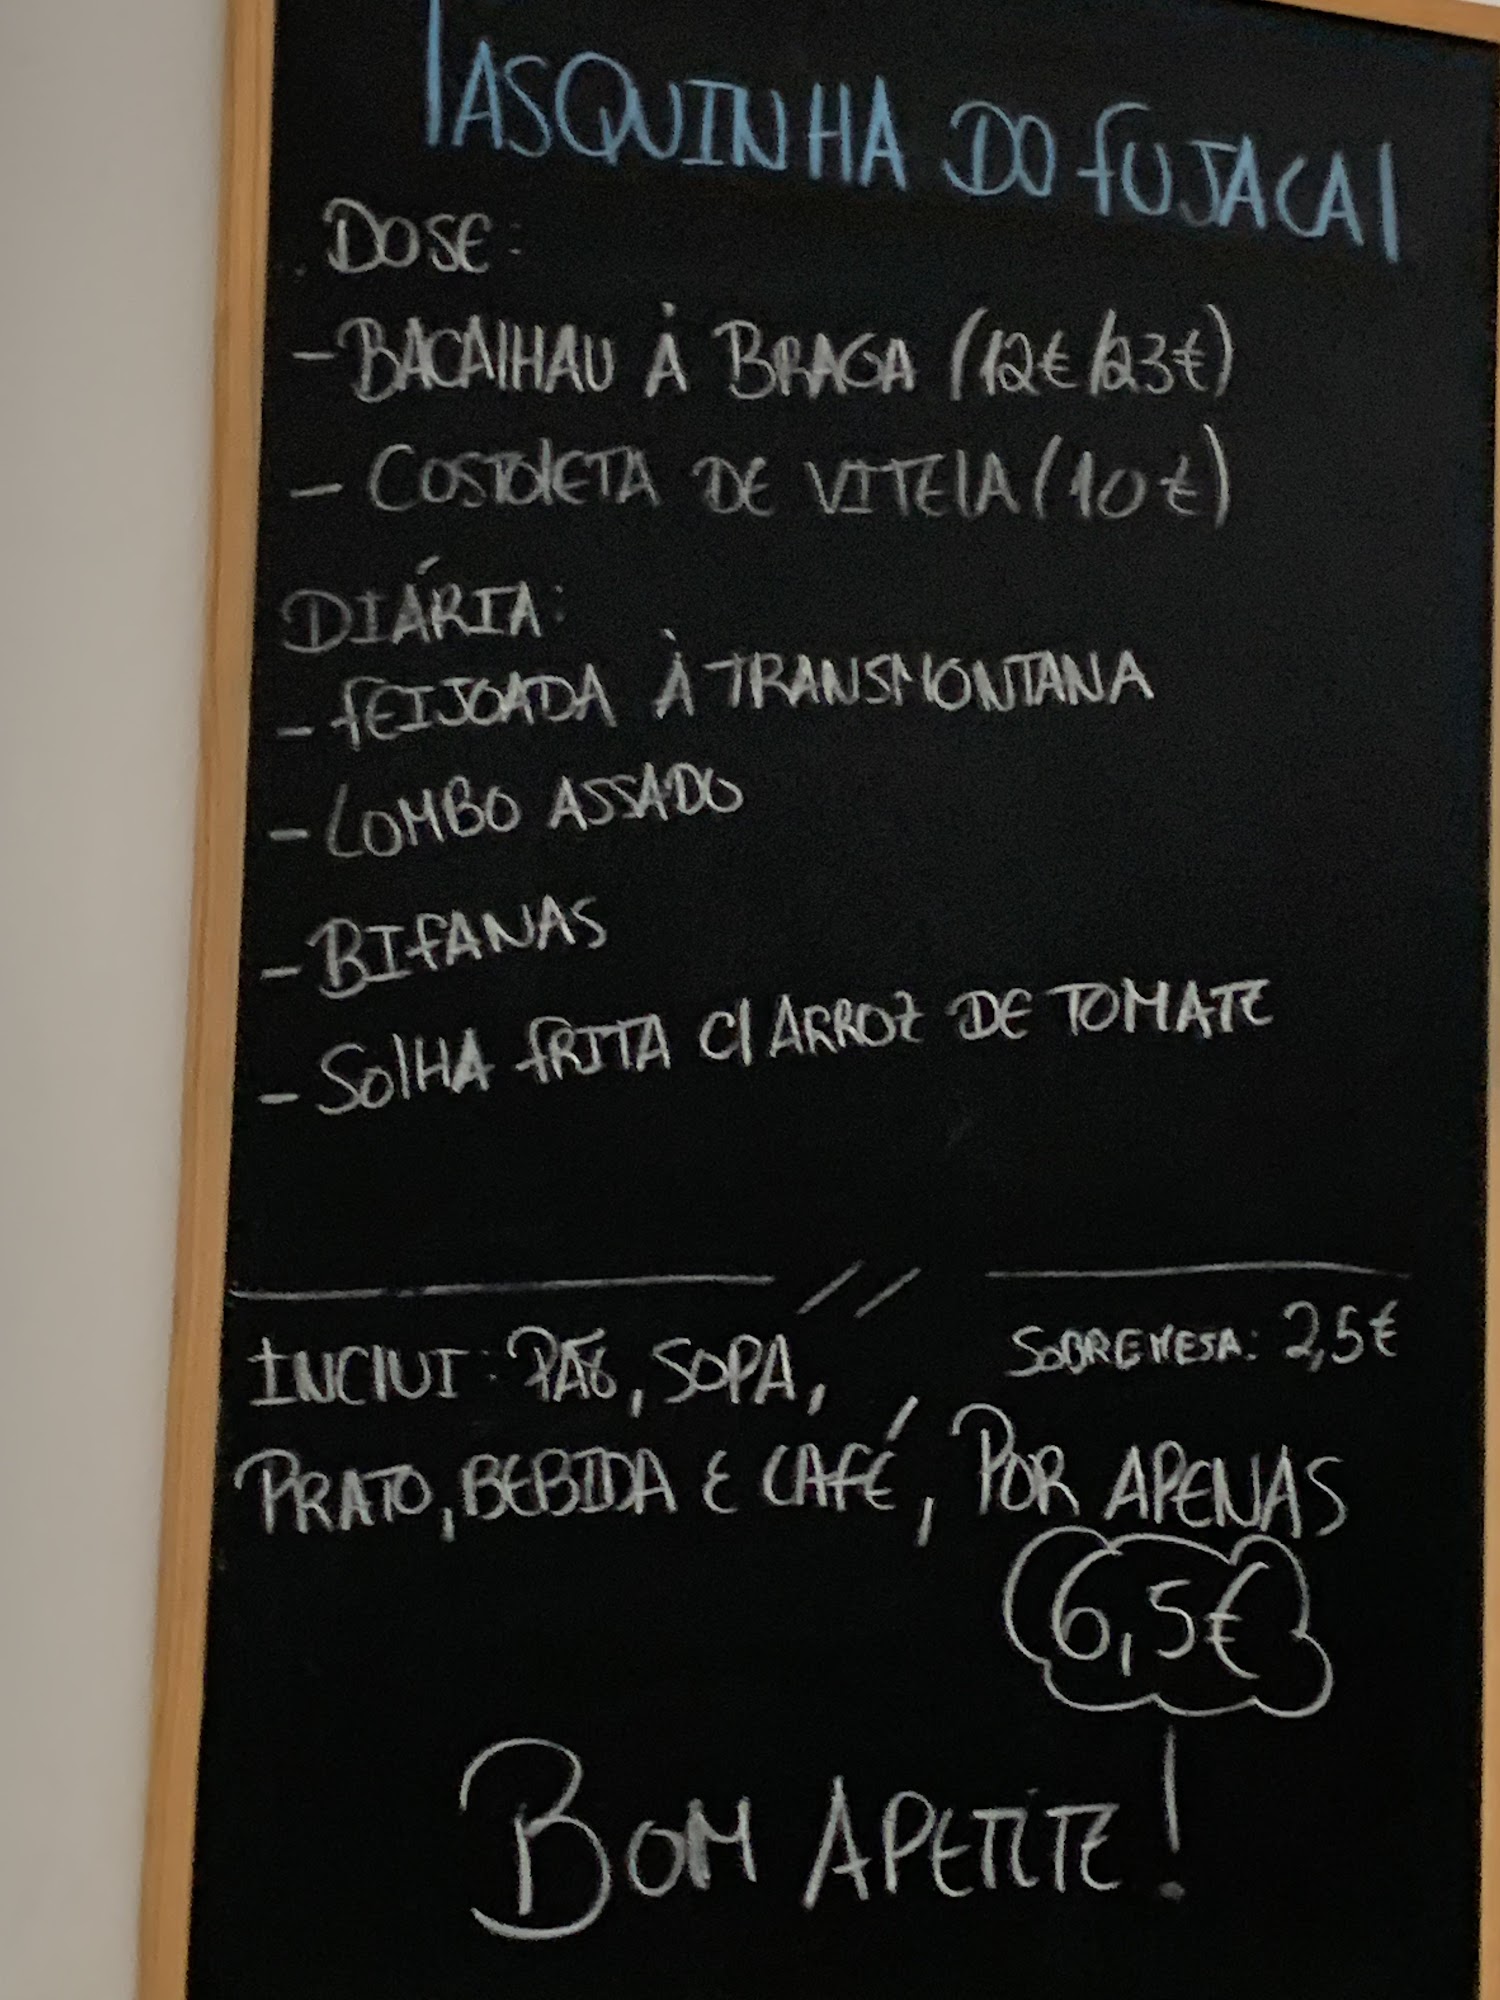 TASQUINHA DO FUJACAL
DOSE:
- BACALHAU À BRAGA (12€/23€)
- COSTOLETA DE VITELA (10€)
DIÁRIA:
- FEIJOADA À TRANSMONTANA
- LOMBO ASSADO
- BIFANAS
- SOLHA FRITA C/ ARROZ DE TOMATE
INCLUI: PÃO, SOPA,
SOBREMESA: 2,5€
PRATO, BEBIDA E CAFÉ, POR APENAS
6,5€
BOM APETITE!